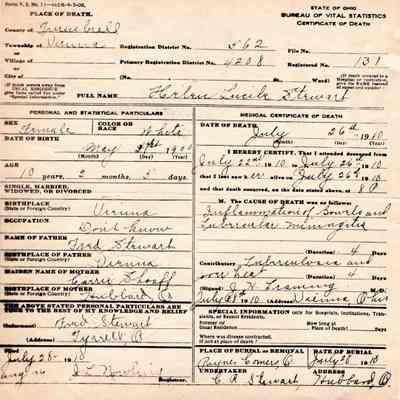 STATE OF OHIO
BUREAU OF VITAL STATISTICS
CERTIFICATE OF DEATH
PLACE OF DEATH.
County of Trumbull
Township of Vienna Registration District No. 562 File No.
Village of Primary Registration District No. 4208 Registered No. 131
City of (No. St.; Ward)
FULL NAME Helen Lucile Stewart
PERSONAL AND STATISTICAL PARTICULARS
SEX Female COLOR OR RACE White
DATE OF BIRTH
May 21st 1900
(Month) (Day) (Year)
AGE
10 years, 2 months, 5 days
SINGLE, MARRIED, WIDOWED, OR DIVORCED
BIRTHPLACE
(State or Foreign Country) Vienna
OCCUPATION
Don't know
NAME OF FATHER
Fred Stewart
BIRTHPLACE OF FATHER
(State or Foreign Country) Vienna
MAIDEN NAME OF MOTHER
Carrie
BIRTHPLACE OF MOTHER
(State or Foreign Country) Hubbard O
THE ABOVE STATED PERSONAL PARTICULARS ARE TRUE TO THE BEST OF MY KNOWLEDGE AND BELIEF
(Informant) Fred Stewart
(Address) Tyrrell O
Filed
July 28 1910
Registrar.
MEDICAL CERTIFICATE OF DEATH
DATE OF DEATH
July 26th 1910
(Month) (Day) (Year)
I HEREBY CERTIFY, That I attended deceased from
July 22nd 1910 July 26th 1910
that I last saw her alive on July 26th 1910
and that death occurred, on the date stated above, at 8 P
M. The CAUSE OF DEATH was as follows:
Inflammation of Bowels and
Tubercular Miningitis
(Duration) 4 Days
Contributory Tuberculosis and
over heat (Duration) 4 Days
(Signed) M.D.
July 28 1910 (Address) Vienna Ohio
SPECIAL INFORMATION only for Hospitals, Institutions, Transients, or Recent Residents.
Former or Usual Residence How long at Place of Death? Days
Where was disease contracted, if not at place of death?
PLACE OF BURIAL OR REMOVAL DATE OF BURIAL
Paynes Corners O July 28 1910
UNDERTAKER (Address)
C R Stewart, Hubbard O